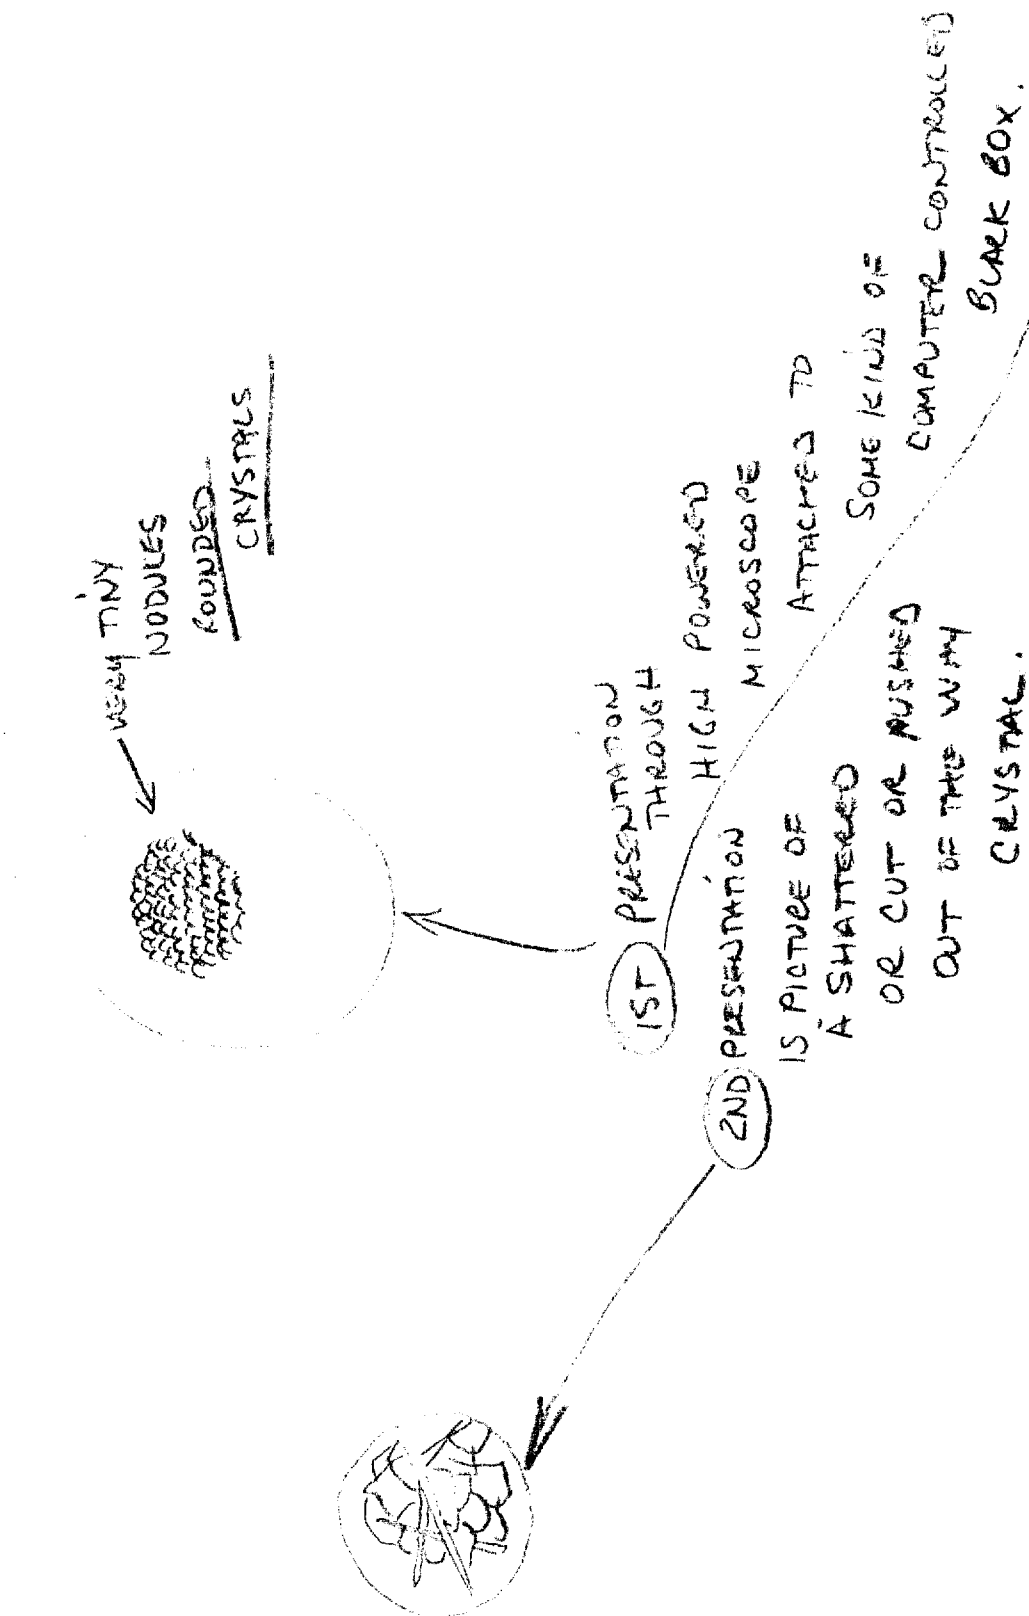 VERY TINY
NODULES
ROUNDED
CRYSTALS
1ST PRESENTATION
THROUGH
HIGH POWERED
MICROSCOPE
ATTACHED TO
SOME KIND OF
COMPUTER CONTROLLED
BLACK BOX.
2ND PRESENTATION
IS PICTURE OF
A SHATTERED
OR CUT OR PUSHED
OUT OF THE WAY
CRYSTAL.